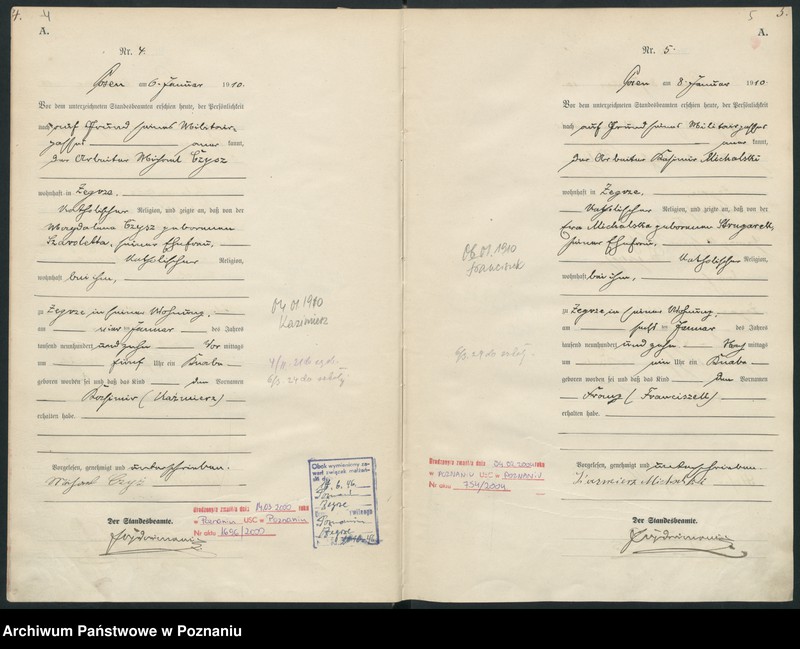 4.
4
A.
Nr. 4.
Posen am 6. Januar 1910.
Vor dem unterzeichneten Standesbeamten erschien heute, der Persönlichkeit
nach auf Grund seines Militair-
passes aner kannt,
der Arbeiter Michael Czysz
wohnhaft in Zegrze,
katholischer Religion, und zeigte an, daß von der
Magdalena Czysz geborenen
seiner Ehefrau,
katholischer Religion,
wohnhaft bei ihm,
zu Zegrze in seiner Wohnung,
am vier ten Januar des Jahres
tausend neunhundert und zehn Vor mittags
um fünf Uhr ein Knabe
geboren worden sei und daß das Kind den Vornamen
Kasimir (Kaźmierz)
erhalten habe.
Vorgelesen, genehmigt und unterschrieben.
Michael Czyż
Der Standesbeamte.
04 01 1910
Kazimierz
Obok wymieniony za-
warł związek małżeń-
ski dn.
Urodzonego zmarł/a dnia 14.03.2000 roku
w Poznaniu USC w Poznaniu
Nr aktu 1696/2000
5.
5
A.
Nr. 5.
Posen am 8. Januar 1910.
Vor dem unterzeichneten Standesbeamten erschien heute, der Persönlichkeit
nach auf Grund seines Militairpasses
aner kannt,
der Arbeiter Kasimir Michalski
wohnhaft in Zegrze,
katholischer Religion, und zeigte an, daß von der
Ewa Michalska geborenen Strugarek,
seiner Ehefrau,
katholischer Religion,
wohnhaft bei ihm,
zu Zegrze in seiner Wohnung,
am sechs ten Januar des Jahres
tausend neunhundert und zehn Nach mittags
um ein Uhr ein Knabe
geboren worden sei und daß das Kind den Vornamen
Franz (Franciszek)
erhalten habe.
Vorgelesen, genehmigt und unterschrieben.
Kazmierz Michalski
Der Standesbeamte.
06.01.1910
Franciszek
Urodzonego zmarł/a dnia roku
w POZNANIU USC w POZNANIU
Nr aktu 754/2004
Archiwum Państwowe w Poznaniu